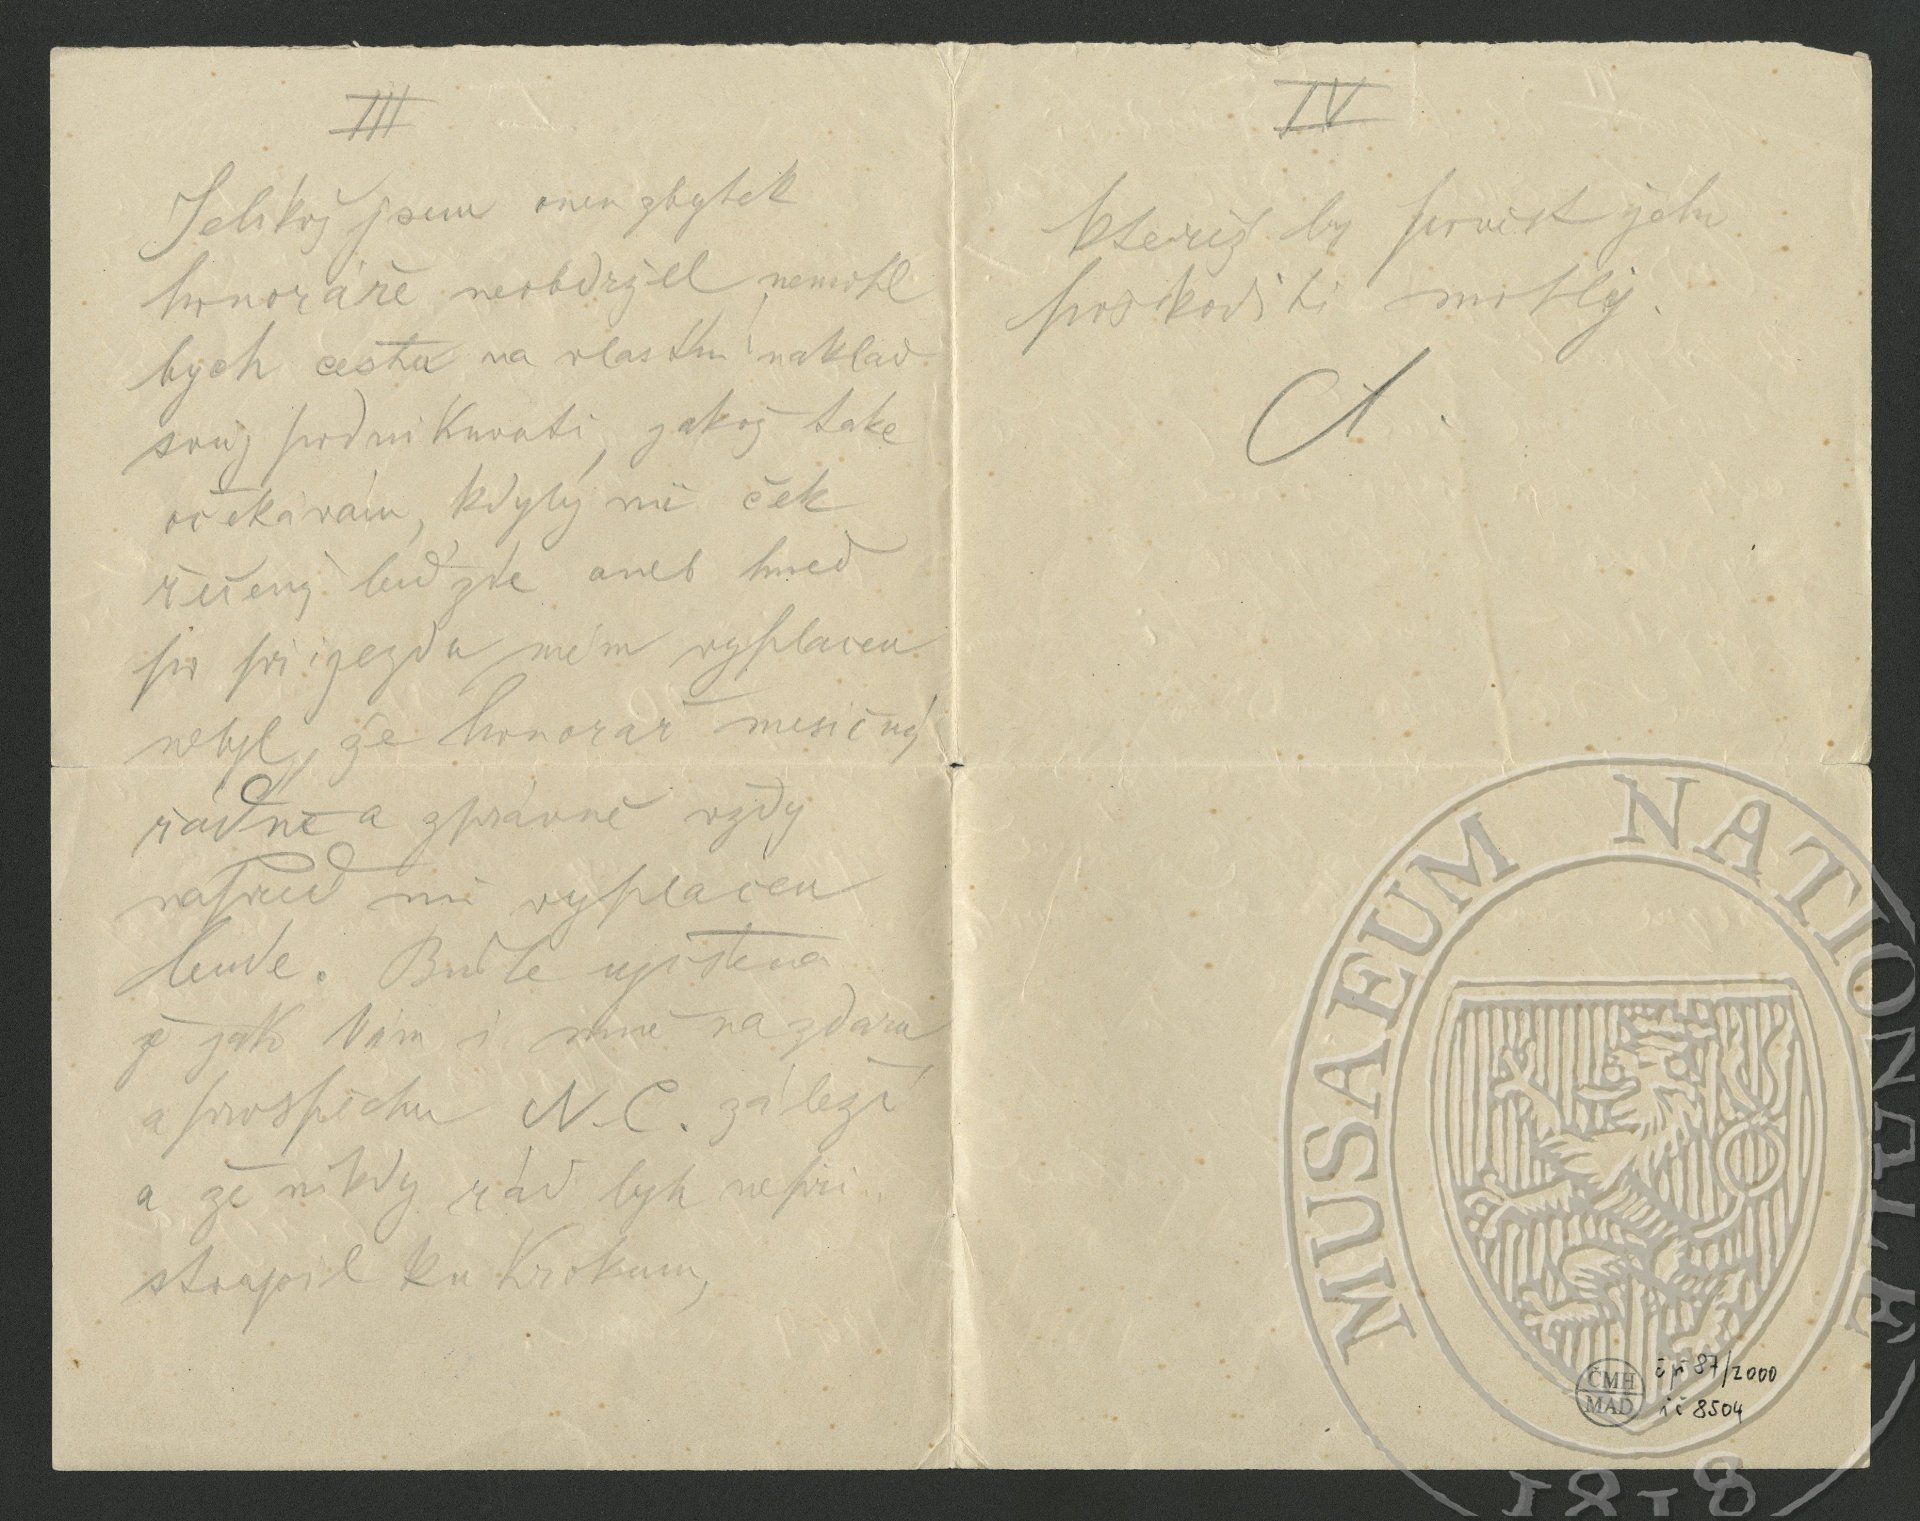 III
Jelikož jsem onen zbytek
honoráře neobdržel nemohl
bych cestu na vlastní náklad
svůj podniknouti, jakož take
očekávám, kdyby mě ček
řečený buď zde aneb hned
po přijezdu mém vyplacen
nebyl, že honorář mesičný
řádně a zprávně vždy
napřed mi vyplacen
bude. Buďte ujištěna
že jak Vám i mně na zdaru
a prospěchu N. C. záleží
a že nikdy rád bych nepři„
stoupil ku Krokum,
IV
kteréž by pověst jeho
poškoditi mohly.
A.
MUSAEUM NATIONALE
1818
ČMH
MAD
č př 87/2000
i č 8504